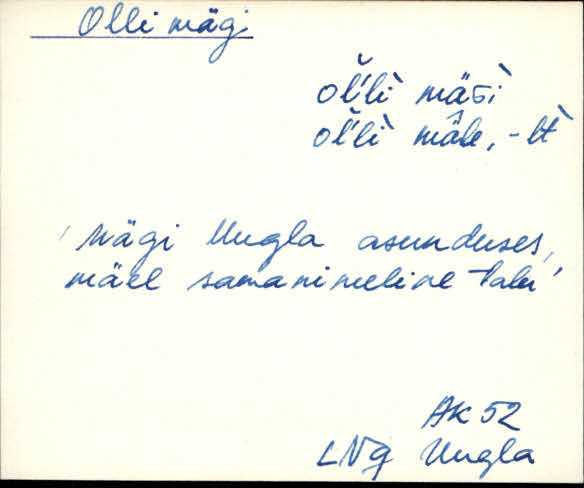 Olli mägi
oĺ̆lì mäɢì
oĺ̆lì mä̂le, -lt
'Mägi Uugla asunduses,
mäel samanimeline talu'
AK 52
LNg Uugla